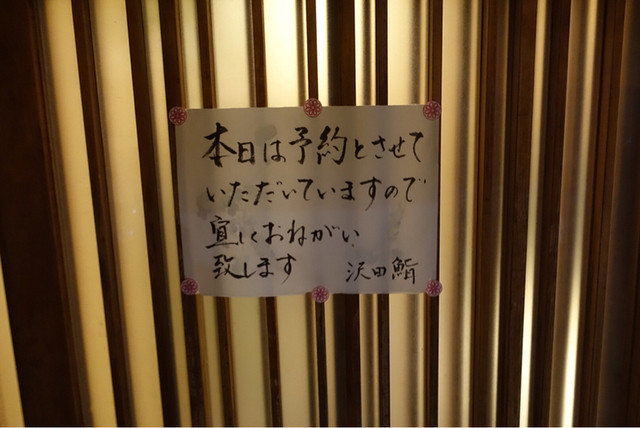 本日は予約とさせて
いただいていますので
宜しくおねがい
致します 沢田鮨